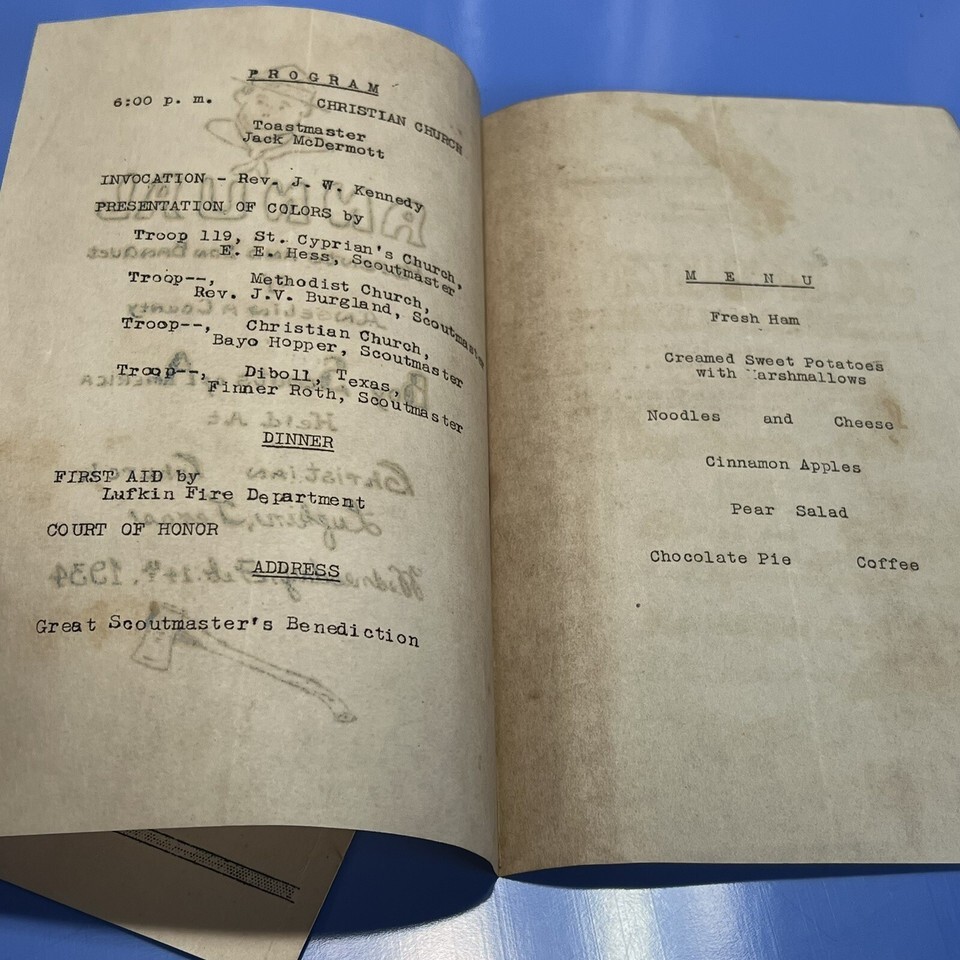 PROGRAM
6:00 p. m. CHRISTIAN CHURCH
Toastmaster
Jack McDermott
INVOCATION - Rev. J. W. Kennedy
PRESENTATION OF COLORS by
Troop 119, St. Cyprian's Church,
E. E. Hess, Scoutmaster
Troop--, Methodist Church,
Rev. J.V. Burgland, Scoutmaster
Troop--, Christian Church,
Bayo Hopper, Scoutmaster
Troop--, Diboll, Texas,
Finner Roth, Scoutmaster
DINNER
FIRST AID by
Lufkin Fire Department
COURT OF HONOR
ADDRESS
Great Scoutmaster's Benediction
MENU
Fresh Ham
Creamed Sweet Potatoes
with Marshmallows
Noodles and Cheese
Cinnamon Apples
Pear Salad
Chocolate Pie Coffee